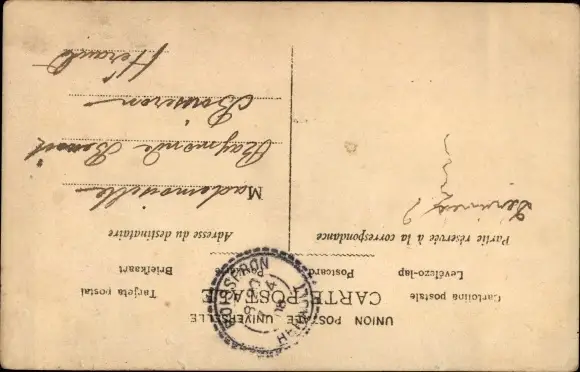 UNION POSTALE UNIVERSELLE
CARTE POSTALE
Cartolina postale
Levelezo-lap
Postcard
Briefkaart
Tarjeta postal
Partie réservée à la correspondance
Adresse du destinataire
BOISSERON
HERAULT
Mademoiselle
Raymonde Benoit
Boisseron
Hérault